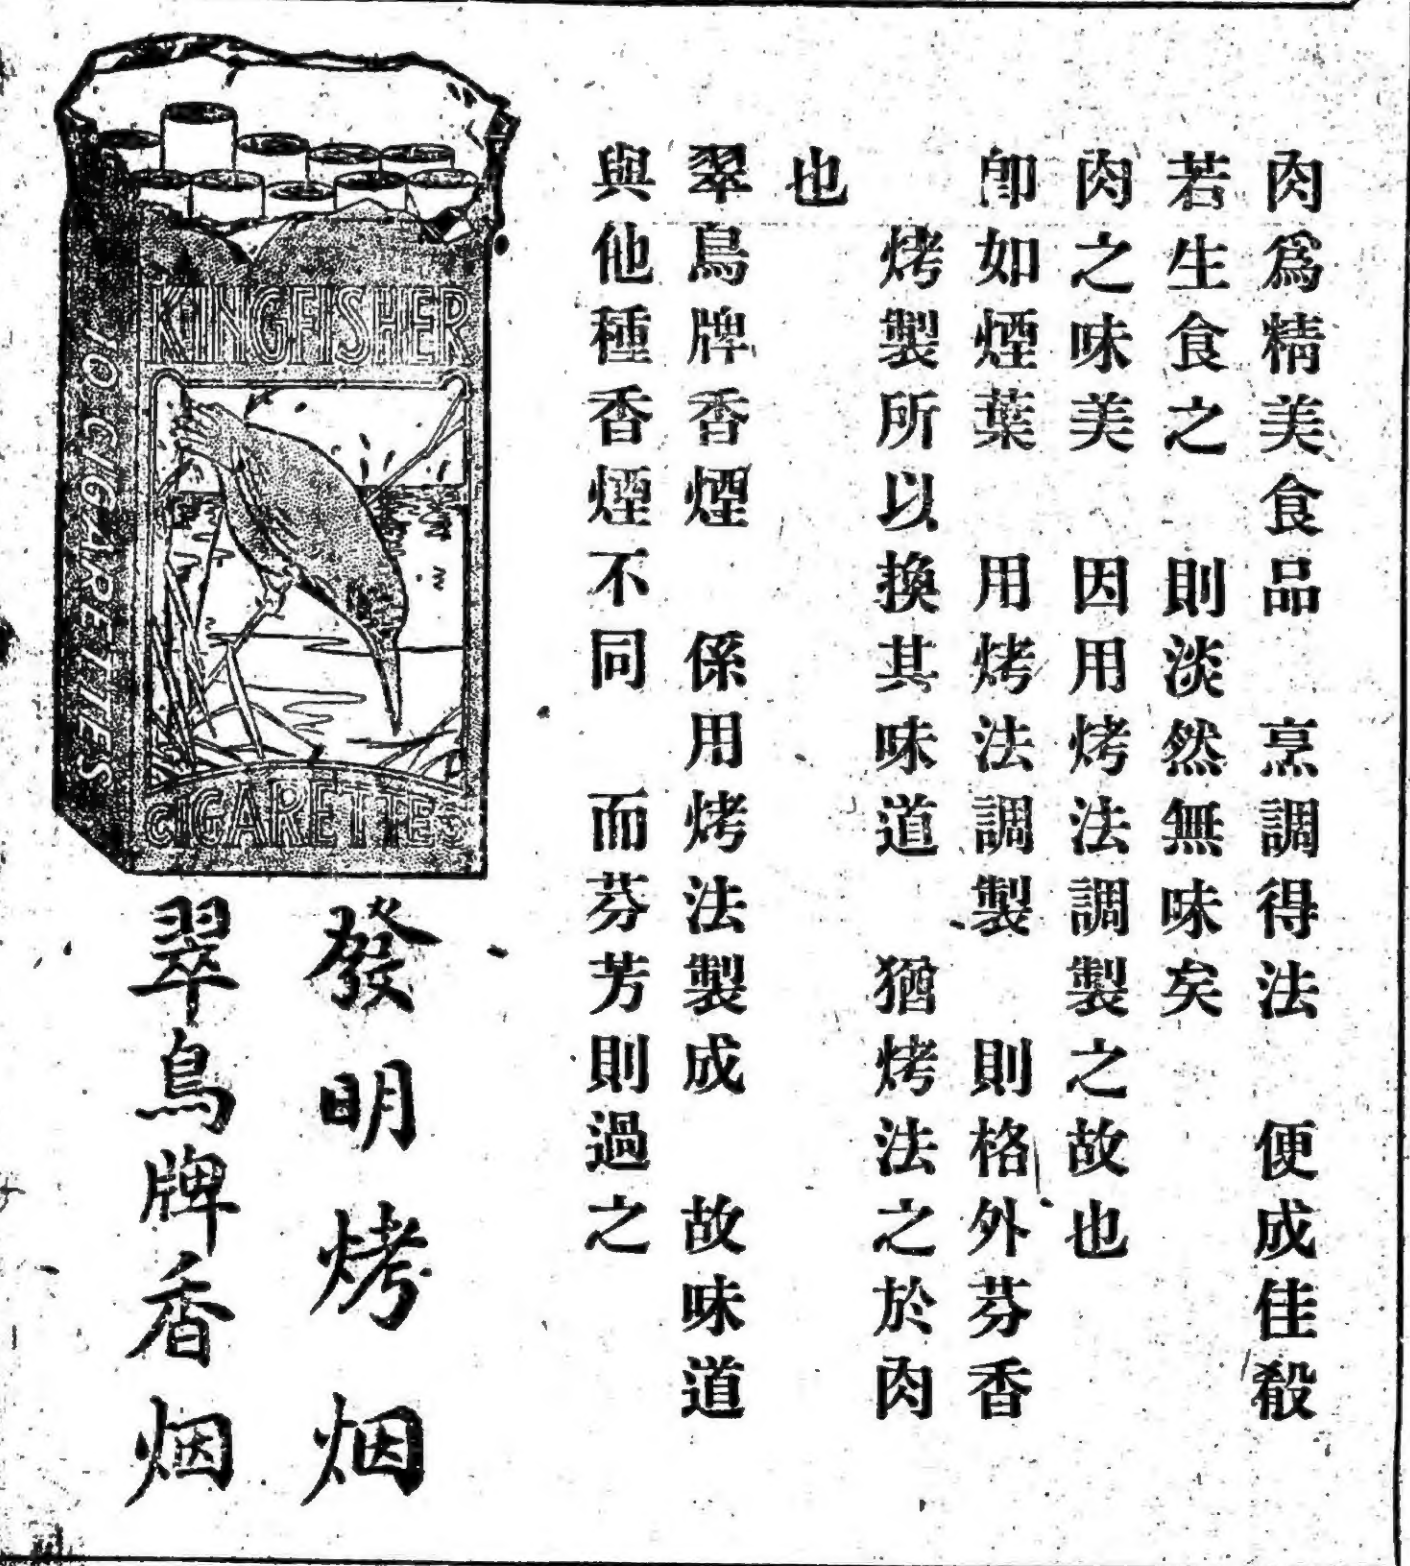 肉爲精美食品　烹調得法　便成佳殽
若生食之　則淡然無味矣
肉之味美　因用烤法調製之故也
卽如煙葉　用烤法調製　則格外芬香
烤製所以換其味道　猶烤法之於肉
也
翠鳥牌香煙　係用烤法製成　故味道
與他種香煙不同　而芬芳則過之
發明烤烟
翠鳥牌香烟
KINGFISHER
CIGARETTES
10 CIGARETTES